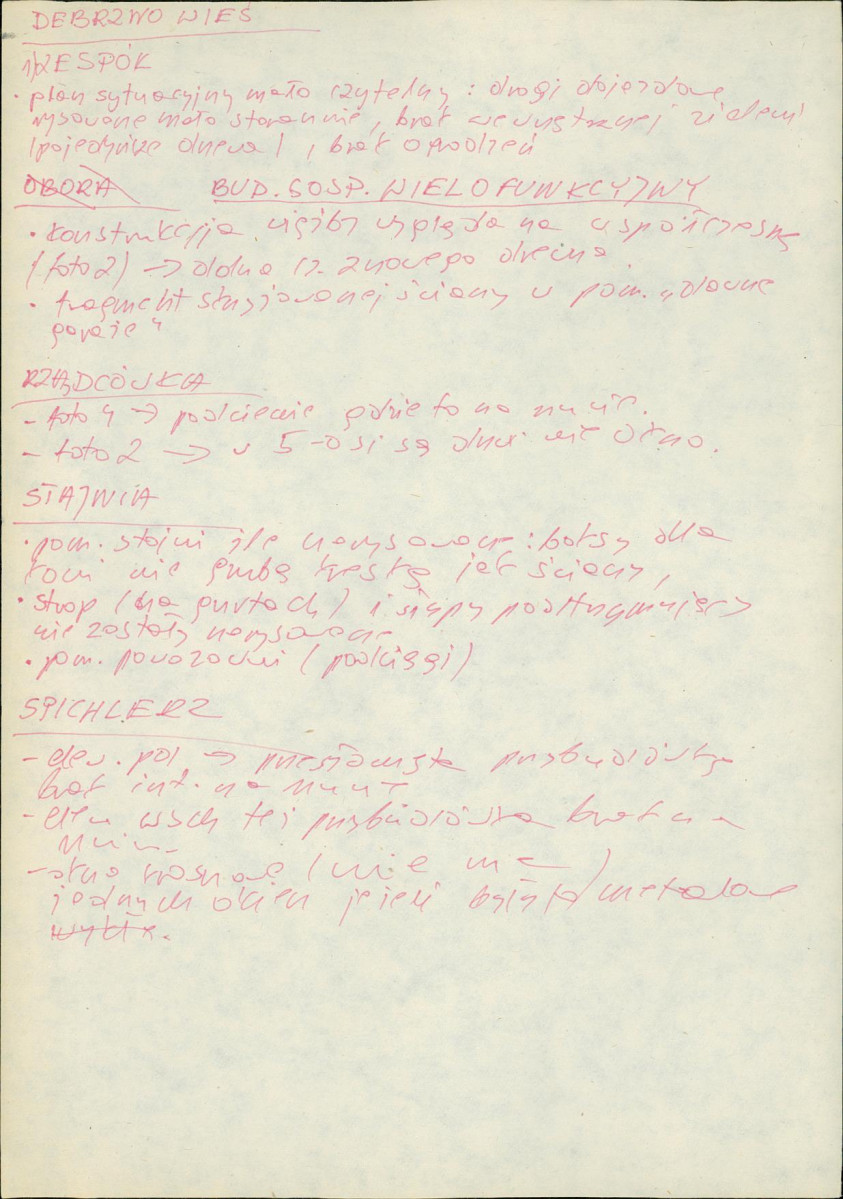 DEBRZNO WIEŚ
1) ZESPÓŁ
• plan sytuacyjny mało czytelny : drogi dojazdowe
rysowane mało starannie, brak wewnętrznej zieleni
(pojedyncze drzewa), brak ogrodzeń
OBORA BUD. GOSP. WIELOFUNKCYJNY
• konstrukcja więźby wygląda na współczesną
(foto 2) → z nowego drewna
• fragment ściany w pom. „dawne
garaże"
RZĄDCÓWKA
- foto 4 → podcienie gdzie to na rzucie.
- foto 2 → w 5-osi są drzwi nie okno.
STAJNIA
• pom. stajni źle narysowane : boksy dla
koni nie grubą kreską jak ściany,
• strop (na gurtach) i słupy podtrzymujący
nie zostały narysowane
• pom. powozowni (podciągi)
SPICHLERZ
- elew. pol. → przybudówka
brak inf. na rzucie
- elew wsch tej przybudówka brak na
rzucie
- okna (nie ma
jednych okien jeżeli były to) metalowe